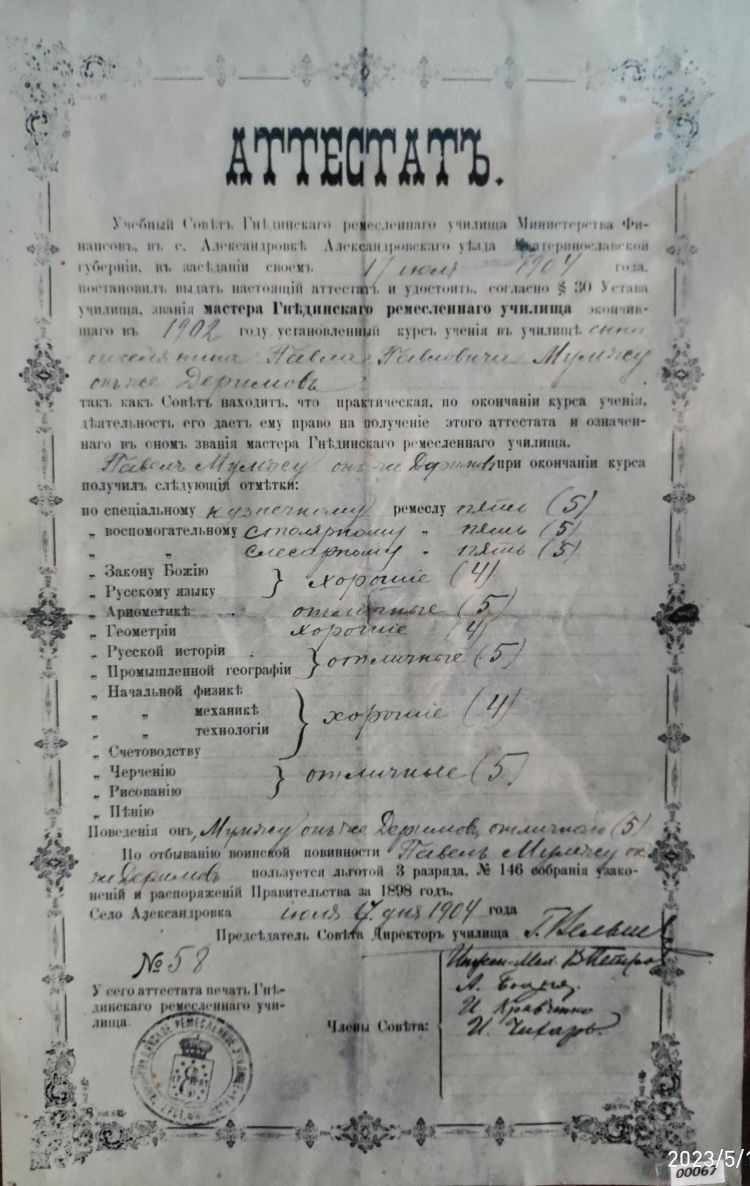 АТТЕСТАТЪ.
Учебный Совѣтъ Гнѣдинскаго ремесленнаго училища Министерства Фи-
нансовъ, въ с. Александровкѣ Александровскаго уѣзда Екатеринославской
губерніи, въ засѣданіи своемъ 17 іюля 1904 года,
постановилъ выдать настоящій аттестатъ и удостоить, согласно § 30 Устава
училища, званія мастера Гнѣдинскаго ремесленнаго училища окончив-
шаго въ 1902 году установленный курсъ ученія въ училищѣ сына
поселянина Павла Павловича Мумжу
онъ же Деримовъ
такъ какъ Совѣтъ находитъ, что практическая, по окончаніи курса ученія,
дѣятельность его даетъ ему право на полученіе этого аттестата и означен-
наго въ ономъ званія мастера Гнѣдинскаго ремесленнаго училища.
Павелъ Мумжу онъ-же Деримовъ при окончаніи курса
получилъ слѣдующія отмѣтки:
по спеціальному кузнечному ремеслу пять (5)
„ воспомогательному столярному „ пять (5)
„ „ слесарному „ пять (5)
„ Закону Божію
„ Русскому языку } хорошіе (4)
„ Ариѳметикѣ отличные (5)
„ Геометріи хорошіе (4)
„ Русской исторіи
„ Промышленной географіи } отличные (5)
„ Начальной физикѣ
„ „ механикѣ
„ „ технологіи } хорошіе (4)
„ Счетоводству
„ Черченію
„ Рисованію } отличные (5)
„ Пѣнію
Поведенія онъ, Мумжу онъ же Деримовъ, отличного (5)
По отбыванію воинской повинности Павелъ Мумжу онъ
же Деримовъ пользуется льготой 3 разряда, № 146 собранія узако-
неній и распоряженій Правительства за 1898 годъ.
Село Александровка іюля 17 дня 1904 года
Предсѣдатель Совѣта Директоръ училища
№ 58
У сего аттестата печать Гнѣ-
динскаго ремесленнаго учи-
лища.
Члены Совѣта:
В Петров
И. Кравченко
2023/5/1
00067